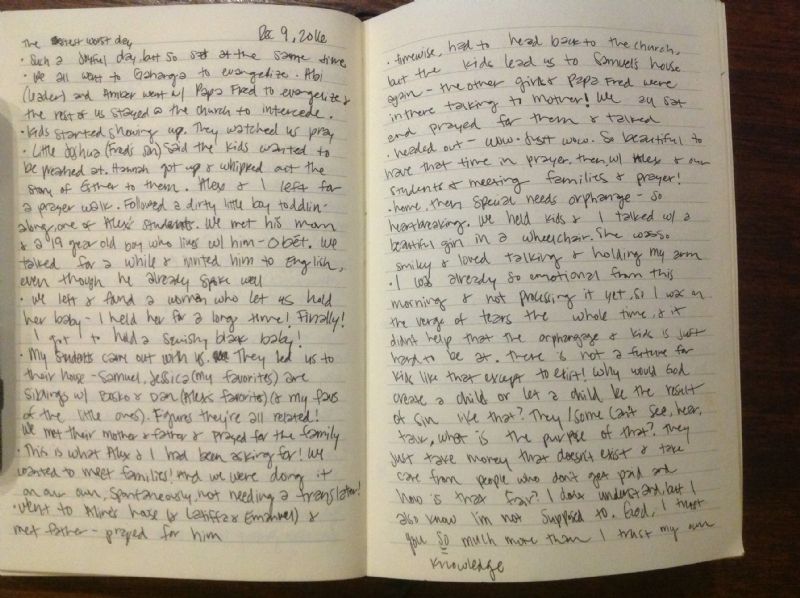 The bestest worst day
Dec 9, 2016
• Such a joyful day, but so sad at the same time
• We all went to Gahanga to evangelize. Abi
(leader) and Amber went w/ Papa Fred to evangelize &
the rest of us stayed @ the church to intercede.
• Kids started showing up. They watched us pray
• Little Joshua (Fred's son) said the kids wanted to
be preached at. Hannah got up & whipped out the
story of Esther to them. Alexs & I left for
a prayer walk. Followed a dirty little boy toddlin-
along, one of Alexs' students. We met his mom
& a 19 year old boy who lives w/ him - Obêt. We
talked for a while & invited him to English,
even though he already spoke well
• We left & found a woman who let us hold
her baby - I held her for a long time! Finally!
I got to hold a squishy black baby!
• My students came out with us. They led us to
their house - Samuel, Jessica (my favorites) are
siblings w/ Bosko & Dan (Alexs favorites) (& my favs
of the little ones). Figures they're all related!
We met their mother & father & prayed for the family
• This is what Alexs & I had been asking for! We
wanted to meet families! And we were doing it
on our own, spontaneously, not needing a translator!
• Went to Aline's house (& Latiffa & Emanuel) &
met father - prayed for him
• timewise, had to head back to the church,
but the kids lead us to Samuel's house
again - the other girls & Papa Fred were
in there talking to mother! We all sat
and prayed for them & talked
• headed out - wow. Just wow. So beautiful to
have that time in prayer, then w/ Alexs & our
students & meeting families & prayer!
• home, then special needs orphange - so
heartbreaking. We held kids & I talked w/ a
beautiful girl in a wheelchair. She was so
smiley & loved talking & holding my arm
• I was already so emotional from this
morning & not processing it yet, so I was on
the verge of tears the whole time, & it
didn't help that the orphangage & kids is just
hard to be at. There is not a future for
kids like that except to exist! Why would God
create a child or let a child be the result
of sin like that? They/some can't see, hear,
talk, what is the purpose of that? They
just take money that doesn't exist & take
care from people who don't get paid and
how is that fair? I don't understand, but I
also know I'm not supposed to. God, I trust
you so much more than I trust my own
knowledge